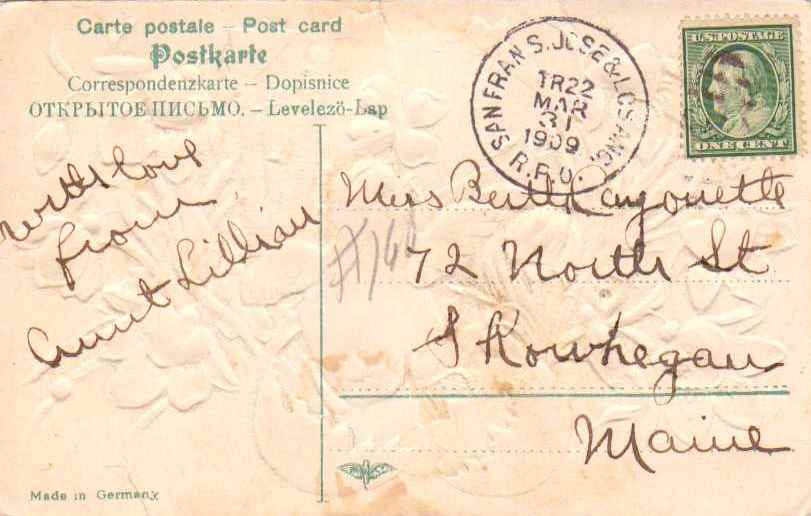 Carte postale – Post card
Postkarte
Correspondenzkarte – Dopisnice
ОТКРЫТОЕ ПИСЬМО. – Levelező-Lap
With love
from
Aunt Lillian
SAN FRAN. S. JOSE & LOS ANG.
TR22
MAR
31
1909
R.P.O.
U.S. POSTAGE
ONE CENT
Miss Berth Layouette
72 North St
Skowhegan
Maine
Made in Germany